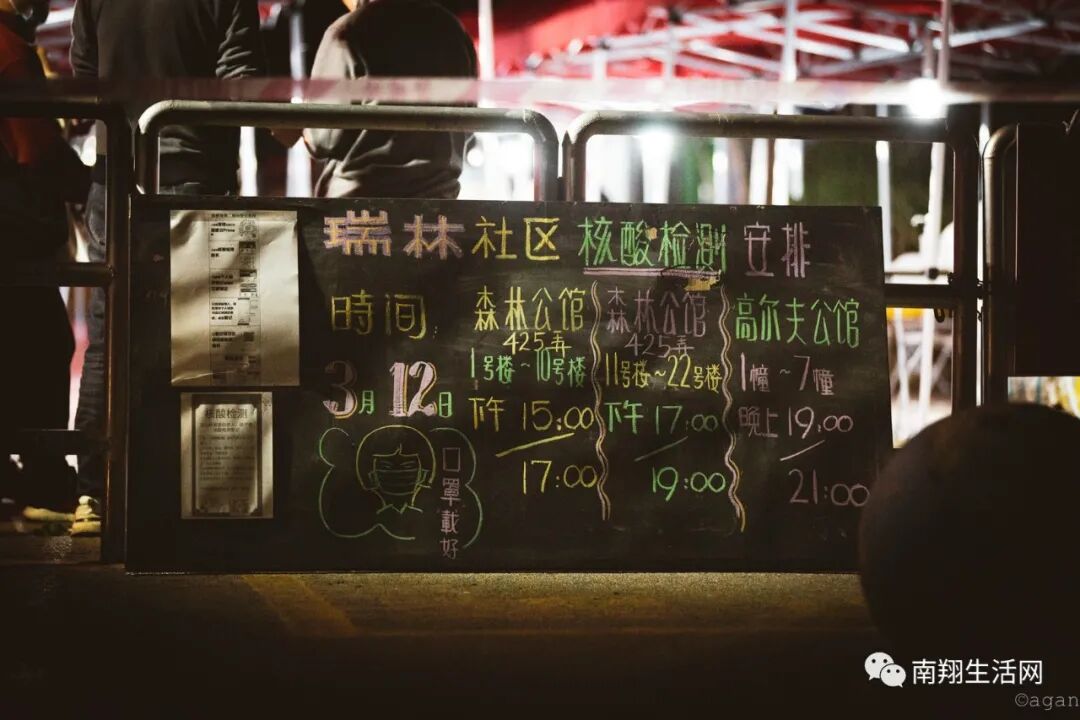 瑞林社区 核酸检測 安排
時间:
3月12日
森林公馆
425弄
1号楼~10号楼
下午 15:00
17:00
森林公馆
425弄
11号楼~22号楼
下午 17:00
19:00
高尔夫公馆
1幢~7幢
晚上 19:00
21:00
口罩載好
核酸检测
南翔生活网
©agan